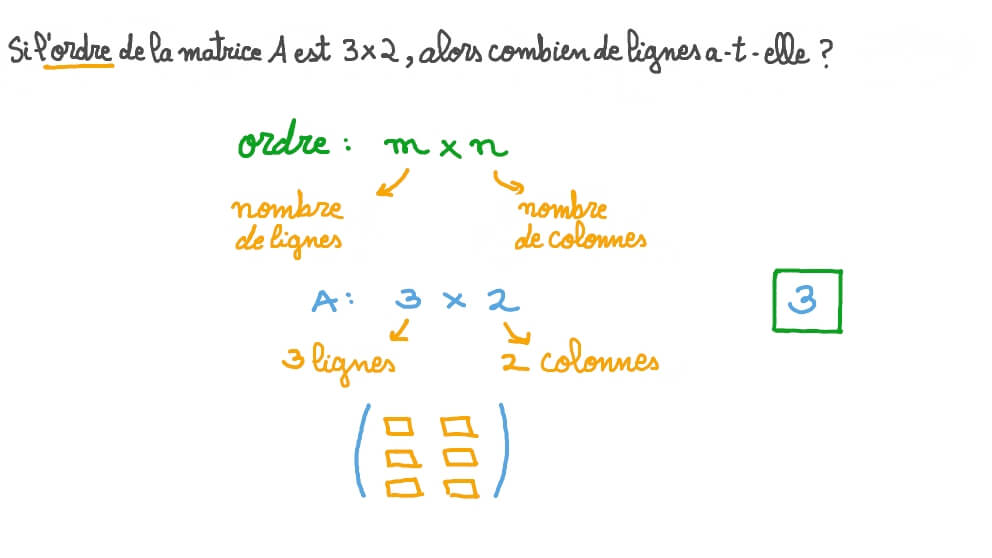 Si l'ordre de la matrice A est 3×2, alors combien de lignes a-t-elle ?
ordre : m × n
nombre de lignes
nombre de colonnes
A : 3 × 2
3 lignes
2 colonnes
3